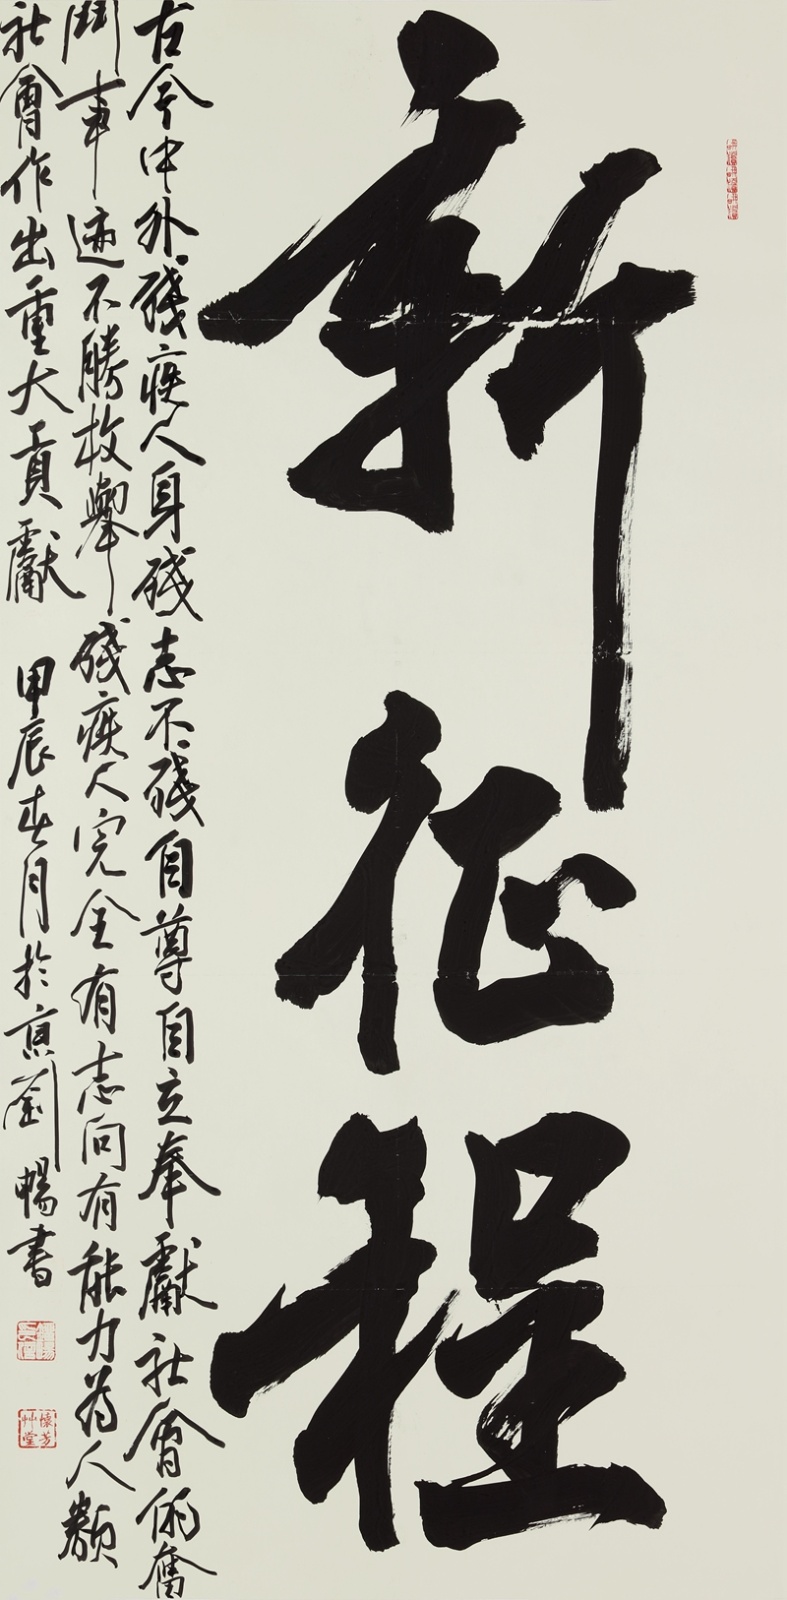 新征程
古今中外殘疾人身殘志不殘自尊自立奉獻社會的奮
鬥事迹不勝枚舉殘疾人完全有志向有能力為人類
社會作出重大貢獻
甲辰春月於京劉暢書